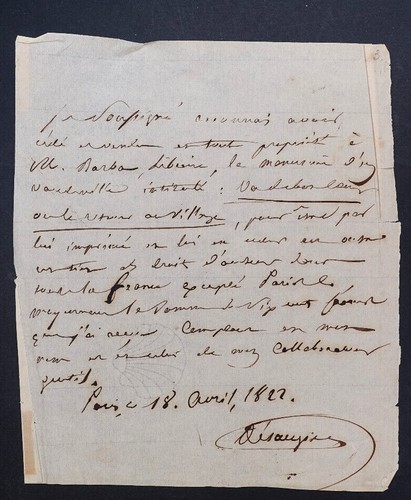 je soussigné reconnais avoir
cédé et vendu en toute propriété à
M. Barba, libraire, le manuscrit d'un
vaudeville intitulé :
ou le retour au village, pour être par
lui imprimé et lui en
de droit d'auteur pour
toute la france excepté Paris &
moyennant la somme de francs
que j'ai reçue comptant en mon
nom et en celui de mes collaborateurs
Paris, 18. avril, 1822.
Désaugiers